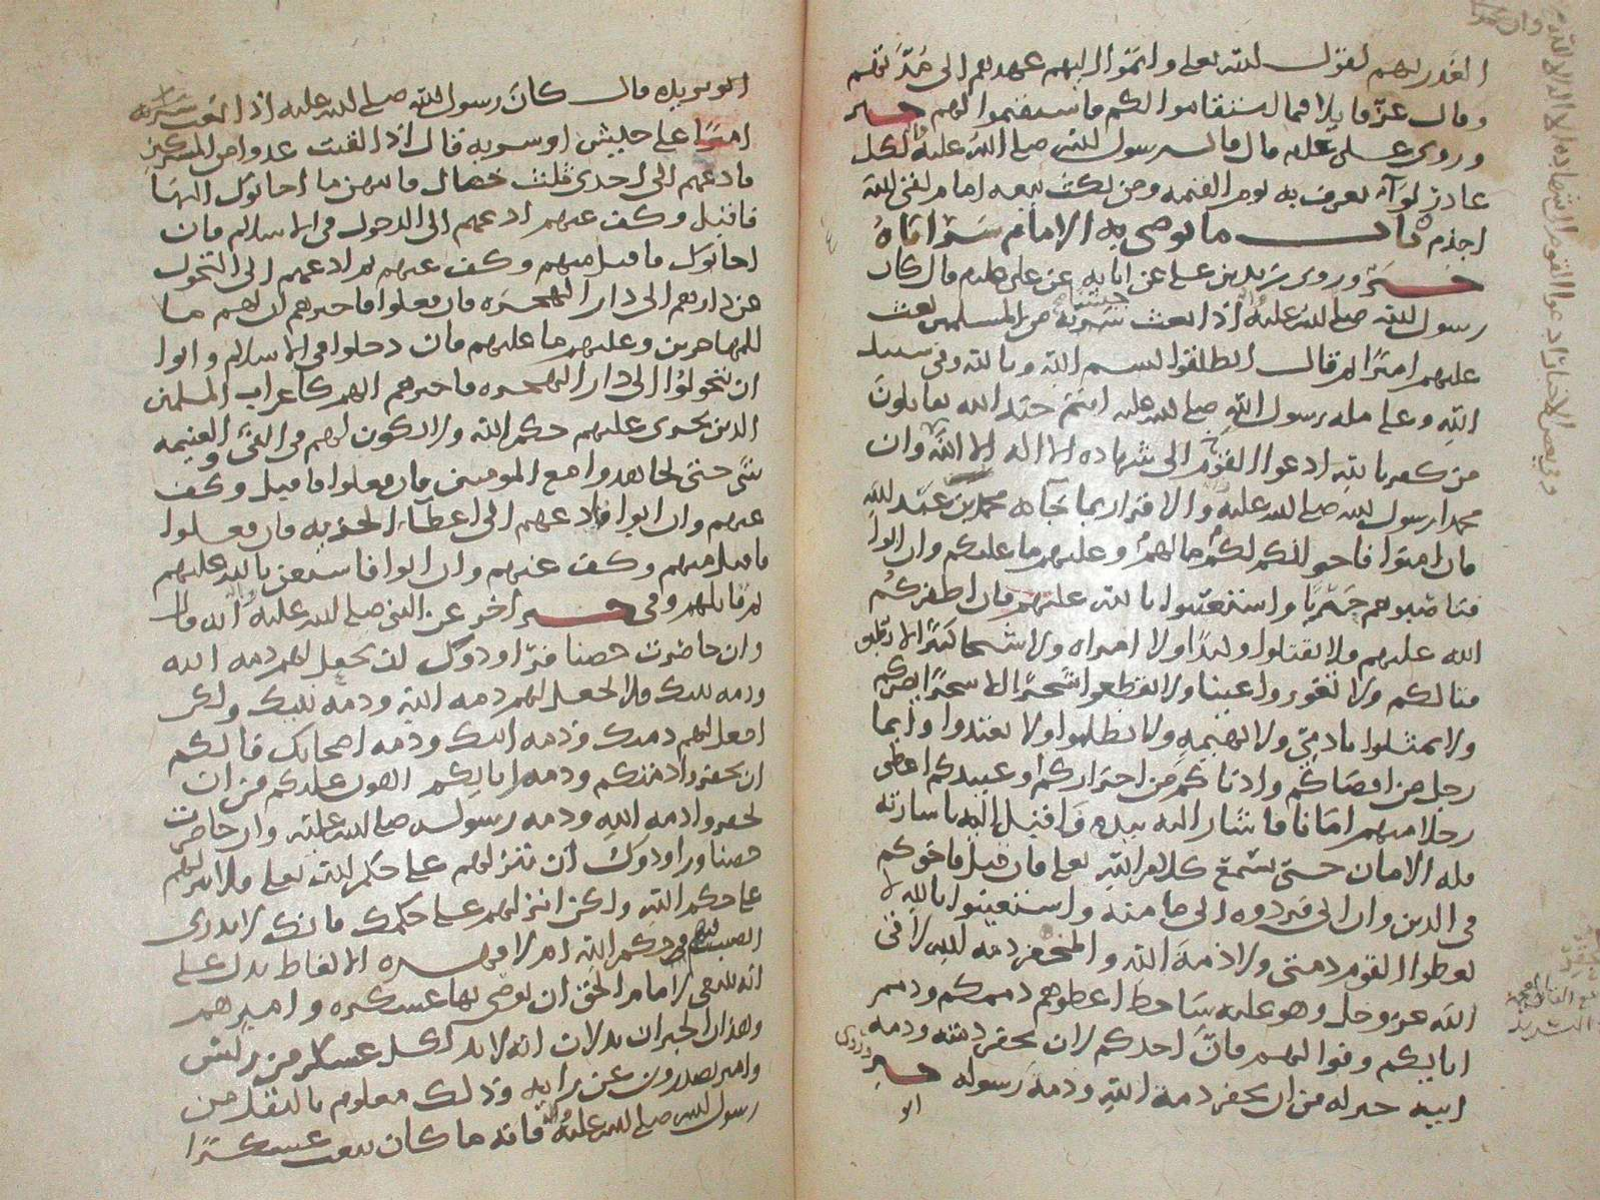 الغدر بهم لقول الله تعالى واتموا اليهم عهدهم الى مدتهم
وقال عز قايلا فما استقاموا لكم فاستقيموا لهم خبر
وروى علي عليه قال قال رسول الله صلى الله عليه لكل
غادر لوآء يعرف به يوم القيمة ومن نكث بيعة امام لقي الله
اجذم باب ما يوصي به الامام سراياه
خبر وروى زيد بن علي عن ابايه عن علي عليه قال كان
رسول الله صلى الله عليه اذا بعث سرية جيشا من المسلمين بعث
عليهم اميرًا ثم قال انطلقوا بسم الله وبالله وفي سبيل
الله وعلى ملة رسول الله صلى الله عليه انتم جند الله تقاتلون
من كفر بالله ادعوا القوم الى شهادة الا اله الا الله وان
محمدا رسول الله صلى الله عليه والاقرار بما جآء به محمد بن عبد الله
فان امنوا فاخوانكم لكم ما لهم وعليهم ما عليكم وان ابوا
فناصبوهم حربًا واستعينوا بالله عليهم فان اظفركم
الله عليهم فلا تقتلوا وليدًا ولا امراة ولا شيخا كبيرًا لا يطيق
قتالكم ولا تغوروا عينا ولا تقطعوا شجرًا الا شجرًا يضركم
ولا تمثلوا بادمي ولا بهيمة ولا تظلموا ولا تعتدوا وايما
رجل من اقصاكم وادناكم من احراركم او عبيدكم اعطى
رجلا منهم امانا فاشار اليه بيده فاقبل اليه باشارته
فله الامان حتى يسمع كلام الله تعالى فان قبل فاخوكم
في الدين وان ابى فردوه الى مامنه واستعينوا بالله لا
تعطوا القوم ذمتي ولا ذمة الله والمخفر ذمة الله لاقي
الله عز وجل وهو عليه ساخط اعطوهم ذممكم وذمم
ابايكم وفوا لهم فان احدكم لان يخفر ذمته وذمة
ابيه خير له من ان يخفر ذمة الله وذمة رسوله خبر وروى
ابو
ابو بريدة قال كان رسول الله صلى الله عليه اذا بعث سرية
اميرًا على جيش او سرية قال اذا لقيت عدوا من المشركين
فادعهم الى احدى ثلث خصال فايتهن ما اجابوك اليها
فاقبل وكف عنهم ادعهم الى الدخول في الاسلام فان
اجابوك فاقبل منهم وكف عنهم ثم ادعهم الى التحول
من دارهم الى دار الهجرة فان فعلوا فاخبرهم ان لهم ما
للمهاجرين وعليهم ما عليهم فان دخلوا في الاسلام وابوا
ان يتحولوا الى دار الهجرة فاخبرهم انهم كاعراب المسلمين
الذين يجري عليهم حكم الله ولا يكون لهم في الفيء والغنيمة
شي حتى يجاهدوا مع المومنين فان فعلوا فاقبل وكف
عنهم وان ابوا فادعهم الى اعطاء الجزية فان فعلوا
فاقبل منهم وكف عنهم وان ابوا فاستعن بالله عليهم
ثم قاتلهم وفي خبر اخر عن النبي صلى الله عليه وآله انه قال
وان حاصرت حصنا فراودوك ان تجعل لهم ذمة الله
وذمة نبيك فلا تجعل لهم ذمة الله وذمة نبيك ولكن
اجعل لهم ذمتك وذمة ابيك وذمة اصحابك فانكم
ان تخفروا ذمتكم وذمة ابايكم اهون عليكم من ان
تخفروا ذمة الله وذمة رسوله صلى الله عليه وان حاصرت
حصنا وراودوك ان تنزلهم على حكم الله تعالى فلا تنزلهم
على حكم الله ولكن انزلهم على حكمك فانك لا تدري
اتصيب فيهم حكم الله ام لا فهذه الالفاظ تدل على
انه ينبغي لامام الحق ان يوصي بها عسكره واميرهم
وهذان الخبران يدلان انه لا بد لكل عسكر من رئيس
وامير يصدرون عن رايه وذلك معلوم بالنقل من
رسول الله صلى الله عليه وآله فانه ما كان يبعث عسكرًا